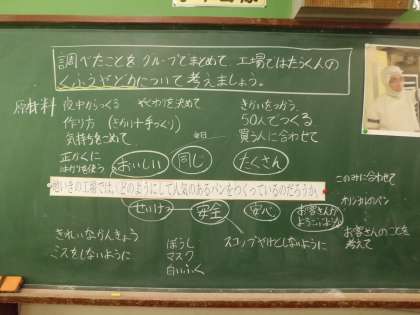 調べたことをグループでまとめて、工場ではたらく人の
くふうやどりょくについて考えましょう。
原材料
夜中からつくる
やくわりを決めて
きかいをつかう
作り方（きかい＋手づくり）
50人でつくる
気持ちをこめて
毎日
買う人に合わせて
正かくに
はかりを使う
おいしい
同じ
たくさん
地いきの工場では、どのようにして人気のあるパンをつくっているのだろうか。
せいけつ
安全
安心
お客さんが
よろこぶように
このみに合わせて
オリジナルのパン
お客さんのことを
考えて
きれいなかんきょう
ミスをしないように
ぼうし
マスク
白いふく